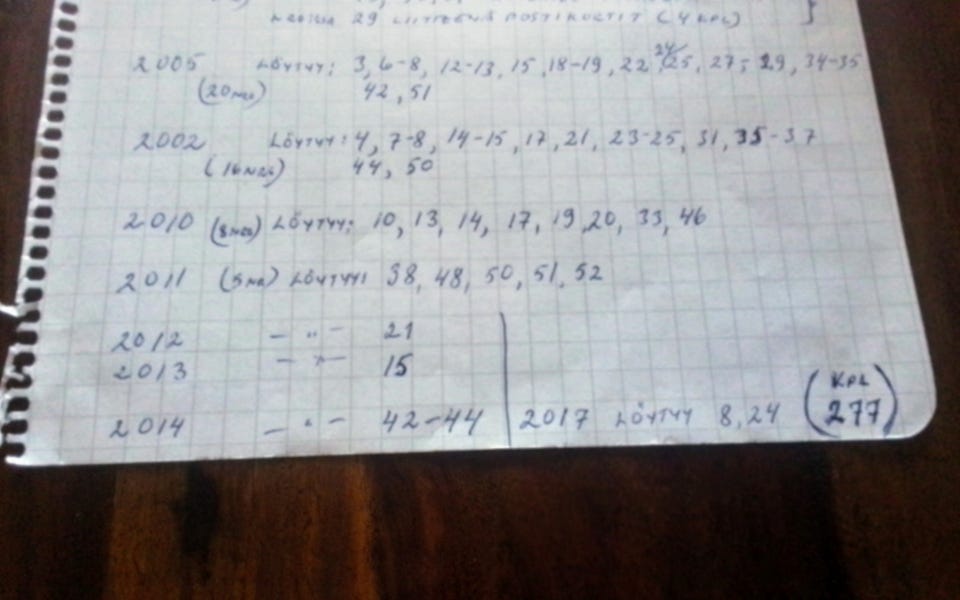 29 LIITTEENÄ POSTIKORTIT (4 KPL)
2005 LÖYTYY: 3, 6-8, 12-13, 15, 18-19, 22, 24, 25, 27, 29, 34-35
42, 51
2002 LÖYTYY: 4, 7-8, 14-15, 17, 21, 23-25, 31, 35-37
44, 50
2010 LÖYTYY: 10, 13, 14, 17, 19, 20, 33, 46
2011 LÖYTYY: 38, 48, 50, 51, 52
2012 – " – 21
2013 – " – 15
2014 – " – 42-44 2017 LÖYTYY 8, 24 (KPL 277)